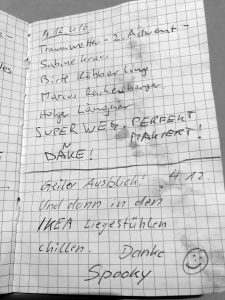 Traumwetter - 2. Advent -
Sabine Kraus
Birte
Marcus Reichenberger
Holger Längerer
SUPER WEG, PERFEKT
MARKIERT!
DANKE!
Geiler Ausblick! 4.12.
Und dann in den
IKEA Liegestühlen
chillen. Danke
Spooky